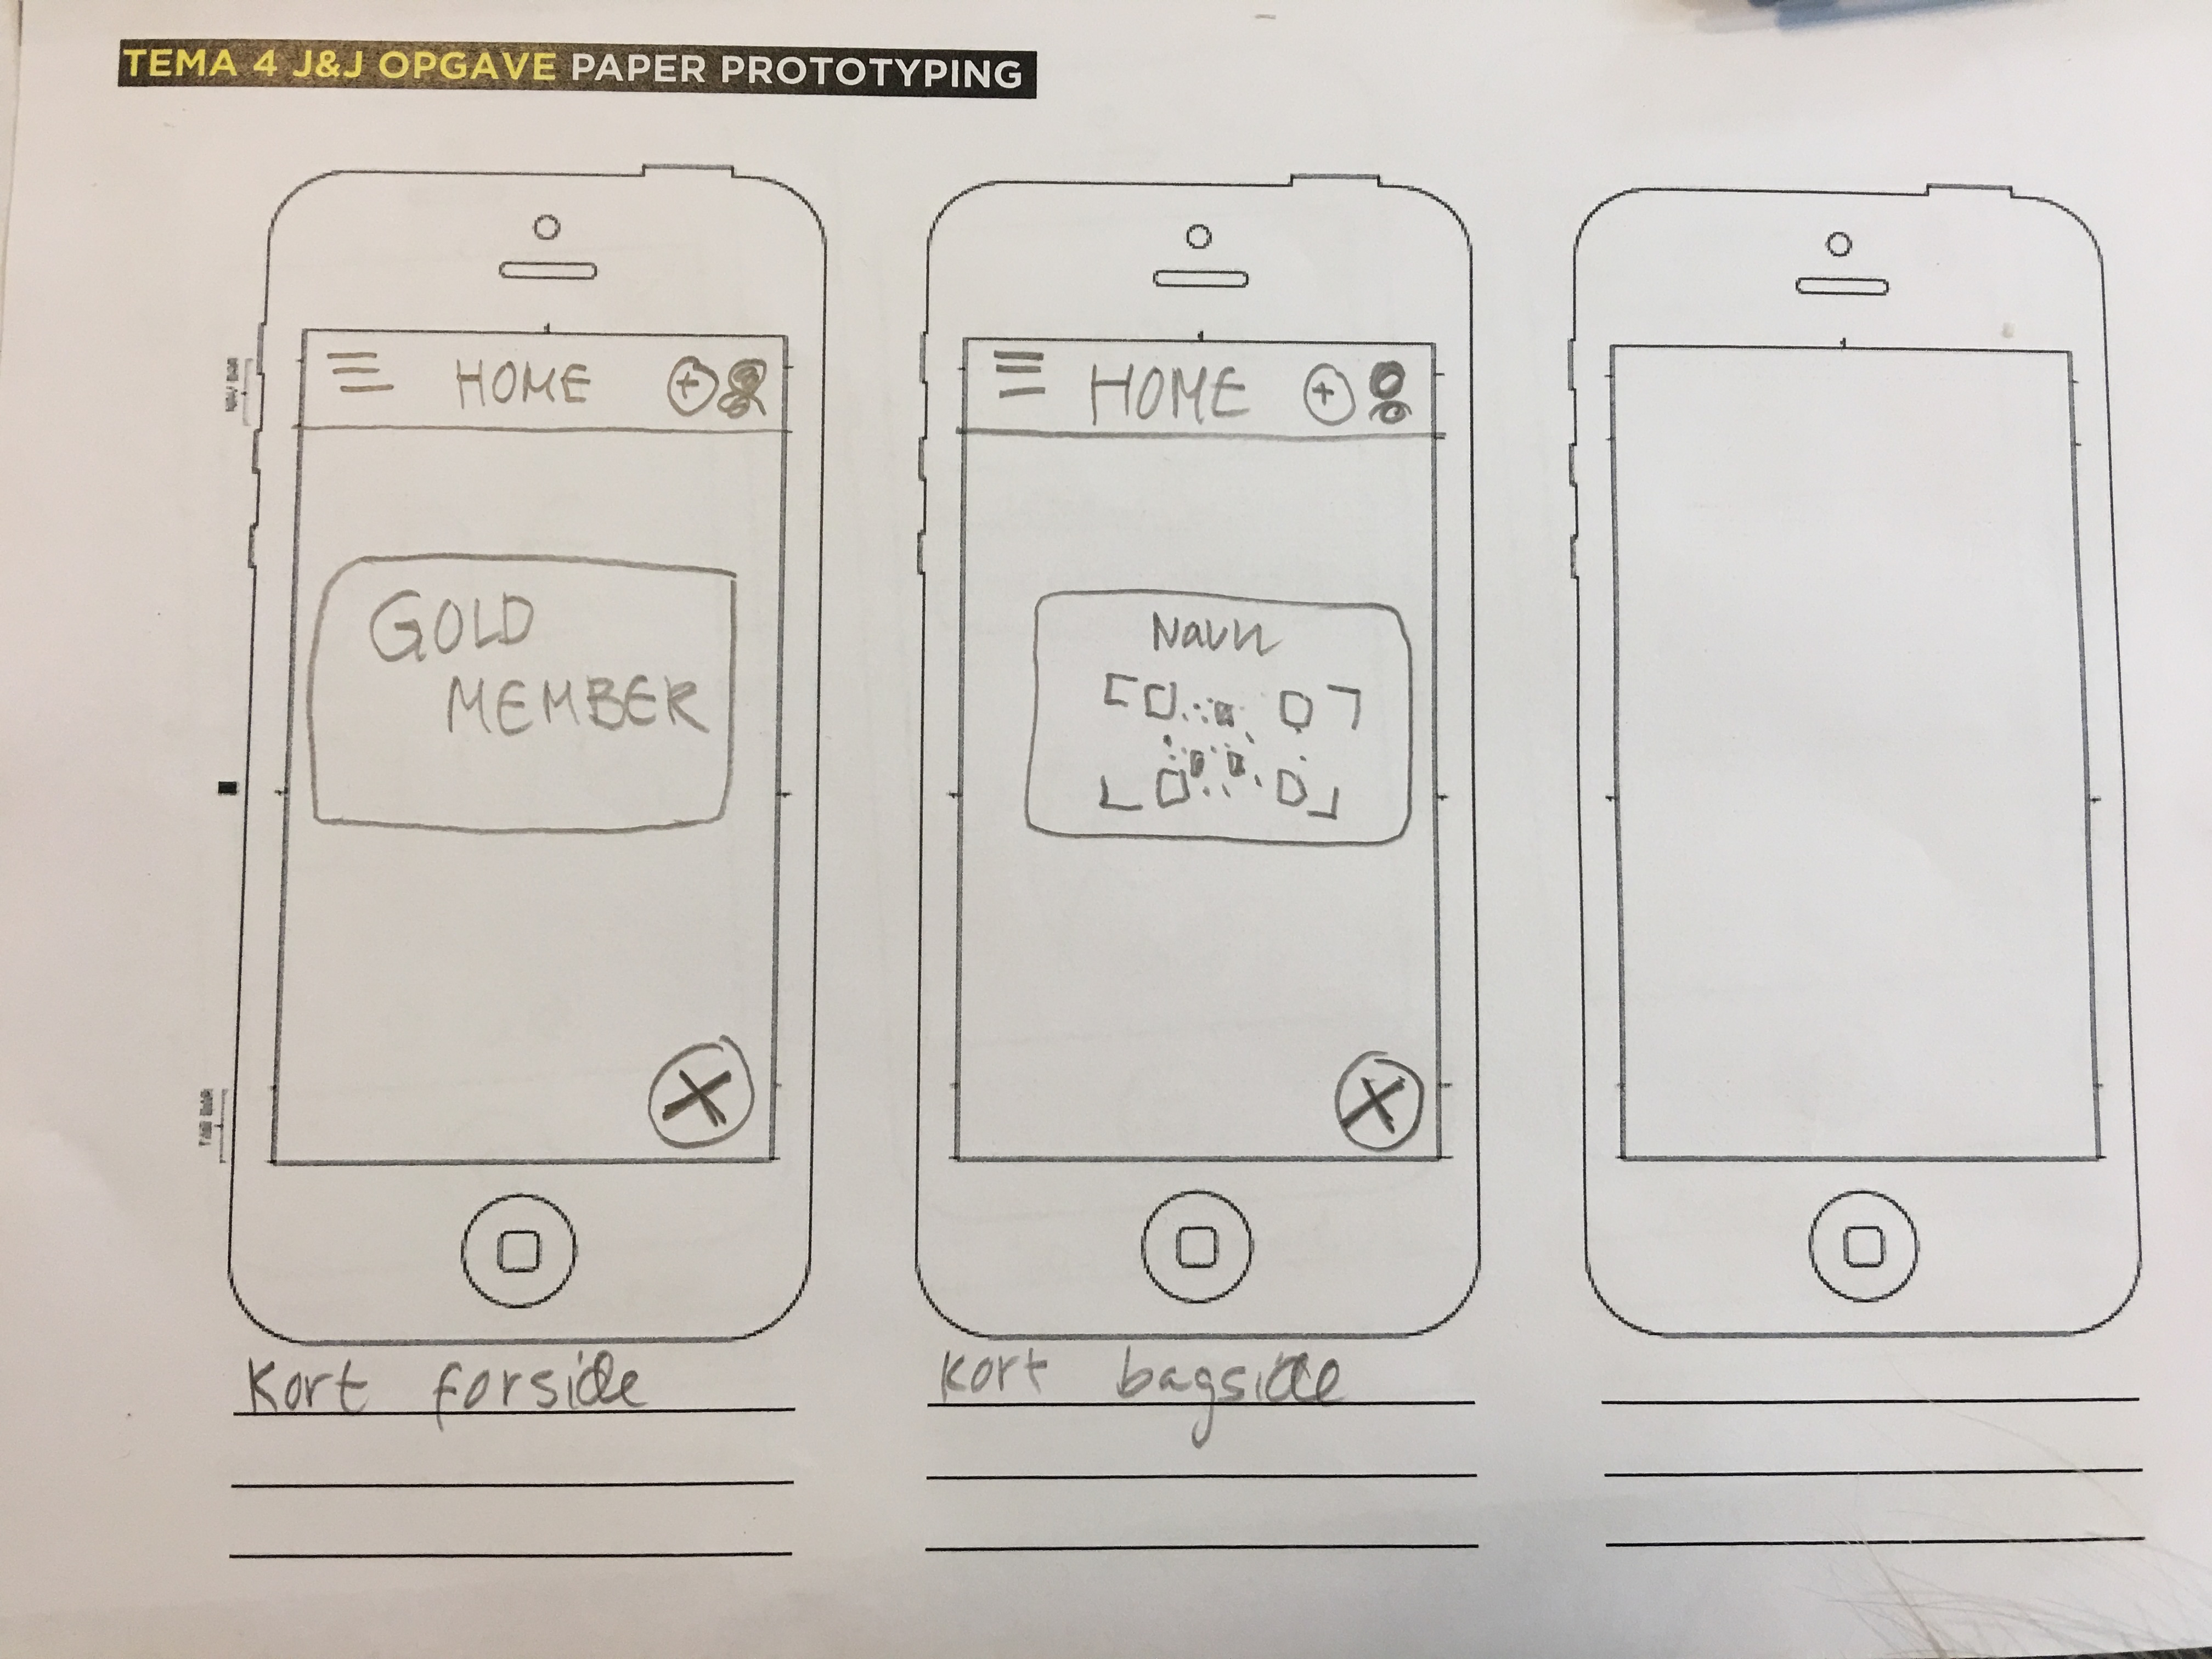 TEMA 4 J&J OPGAVE PAPER PROTOTYPING
HOME
GOLD
MEMBER
Kort forside
HOME
Navn
Kort bagside